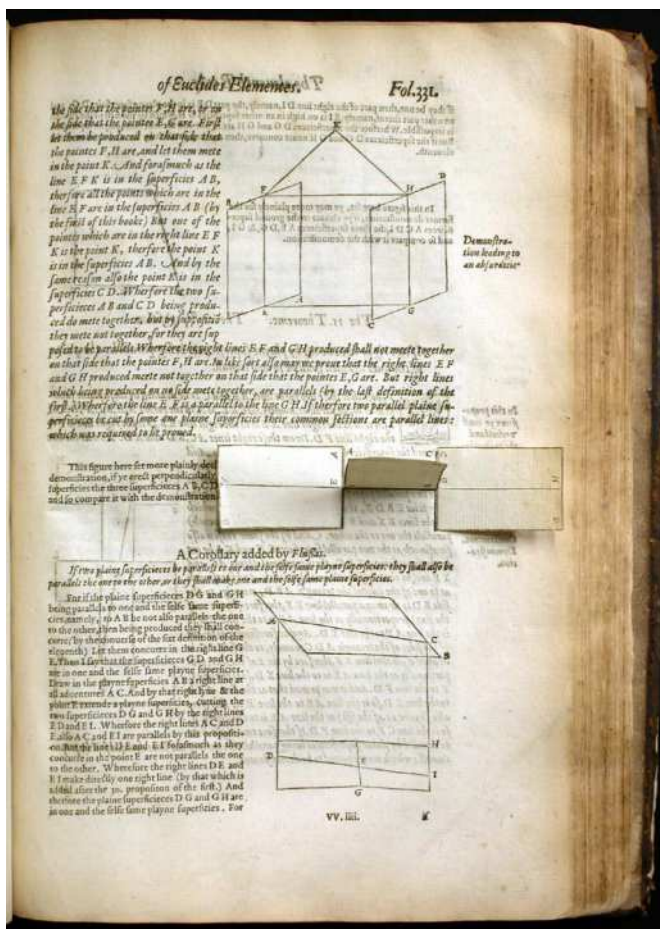 of Euclides Elementes. Fol.331.
the side that the pointes F,H are, or on
the side that the pointes E,G are. First
let them be produced on that side that
the pointes F,H are, and let them mete
in the point K. And forasmuch as the
line E F K is in the superficies A B,
therfore all the points which are in the
line E F are in the superficies A B (by
the first of this booke) But one of the
pointes which are in the right line E F
K is the point K, therfore the point K
is in the superficies A B. And by the
same reason also the point K is in the
superficies C D. Wherfore the two su-
perficieces A B and C D being produ-
ced do mete together, but by supposition
they mete not together, for they are sup
posed to be parallels. Wherfore the right lines E F and G H produced shall not meete together
on that side that the pointes F, H are. In like sort also may we prove that the right lines E F
and G H produced meete not together on that side that the pointes E,G are. But right lines
which being produced on no side mete together, are parallels (by the last definition of the
first.) Wherfore the line E F is a parallel to the line G H. If therfore two parallel plaine su-
perficieces be cut by some one plaine superficies their common sections are parallel lines:
which was required to be proved.
Demonstra-
tion leading to
an absurditie
This figure here set more plainly
demonstration, if ye erect perpendicularly
superficies the three superficieces A B, C D
and so compare it with the demonstration
A Corollary added by Flussas.
If two plaine superficieces be parallels to one and the selfe same playne superficies: they shall also be
parallels the one to the other, or they shall make one and the selfe same plaine superficies.
For if the plaine superficieces D G and G H
being parallels to one and the selfe same superfi-
cies, namely, to A B be not also parallels the one
to the other, then being produced they shall con-
curre, by the conuerse of the sixt definition of the
eleuenth) Let them concurre in the right line G
E. Then I say that the superficieces G D and G H
are in one and the selfe same playne superficies.
Draw in the playne superficies A B a right line at
all aduentures A C. And by that right lyne & the
point E extende a playne superficies, cutting the
two superficieces D G and G H by the right lines
E D and E I. Wherfore the right lines A C and D
E also A C and E I are parallels by this propositi-
on. But the lines D E and E I forasmuch as they
concurre in the point E are not parallels the one
to the other. Wherefore the right lines D E and
E I make directly one right line (by that which is
added after the 30. proposition of the first.) And
therfore the plaine superficieces D G and G H are
in one and the selfe same playne superficies. For
VV.iiii.